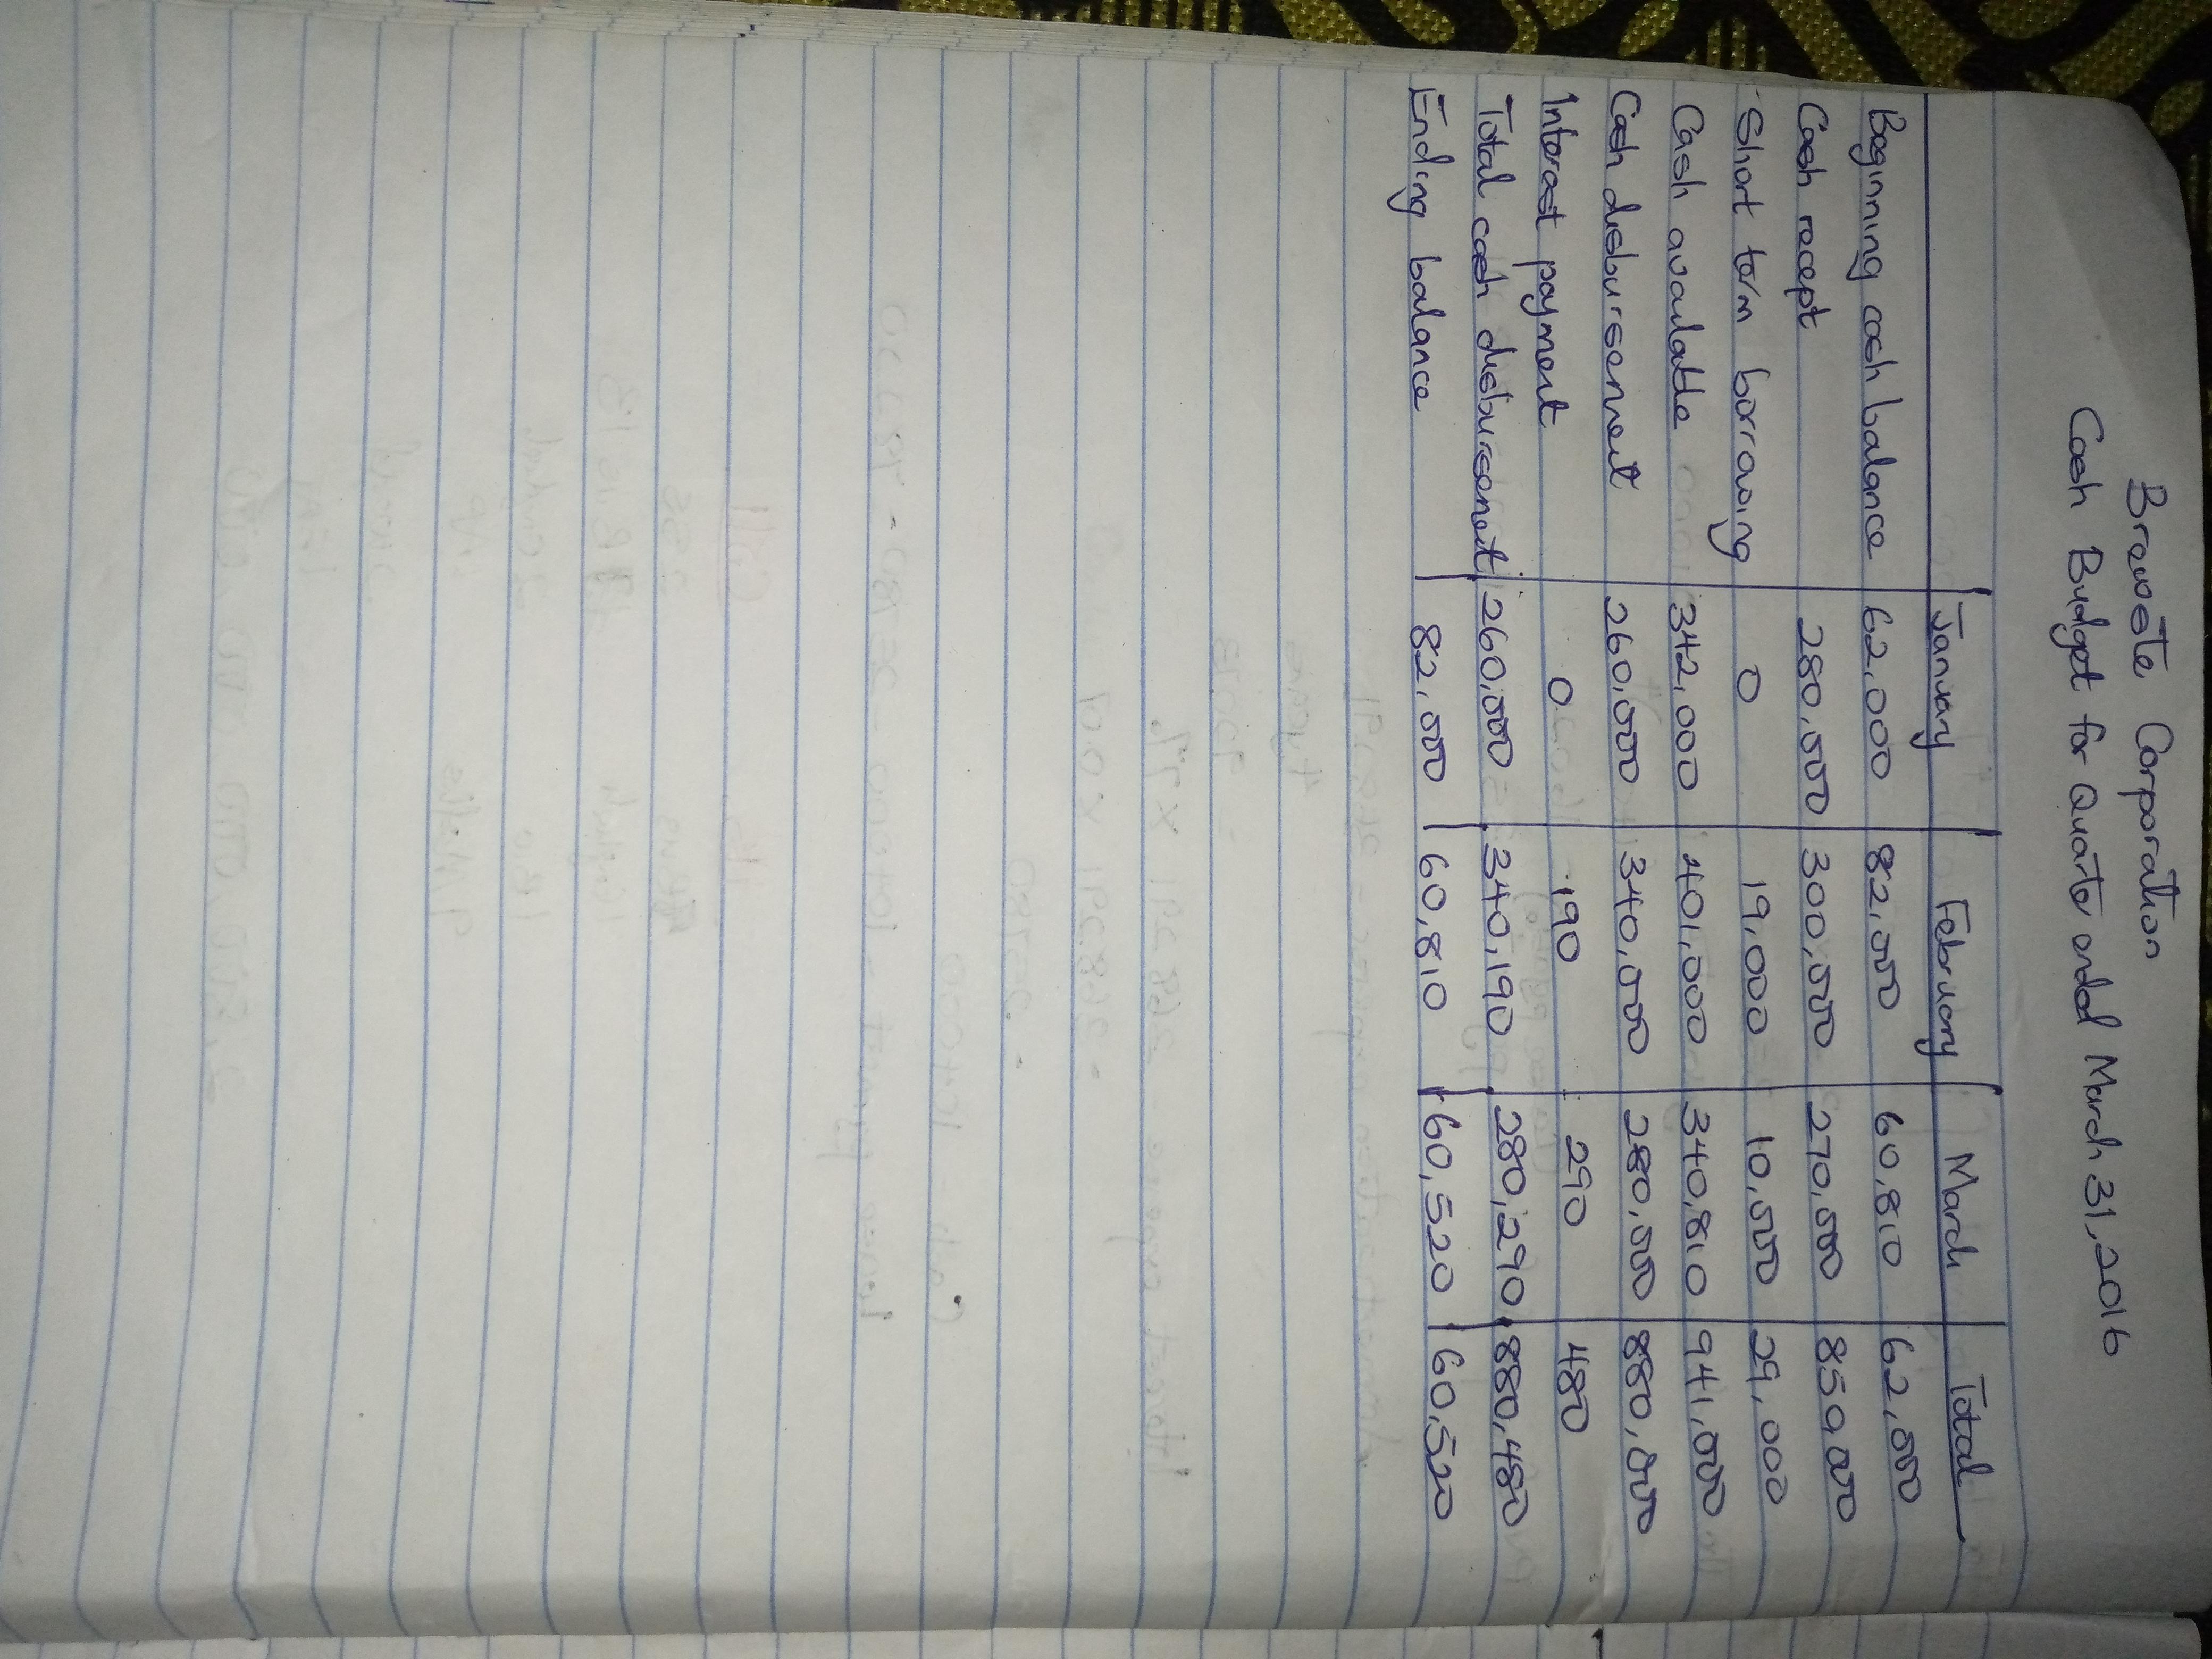 Brewste Corporation
Cash Budget for Quarte ended March 31, 2016
January February March Total
Beginning cash balance 62,000 82,000 60,810 62,000
Cash recept 280,000 300,000 270,000 850,000
Short term borrowing 0 19,000 10,000 29,000
Cash available 342,000 401,000 340,810 941,000
Cash disbursement 260,000 340,000 280,000 880,000
Interest payment 0 190 290 480
Total cash disbursement 260,000 340,190 280,290 880,480
Ending balance 82,000 60,810 60,520 60,520